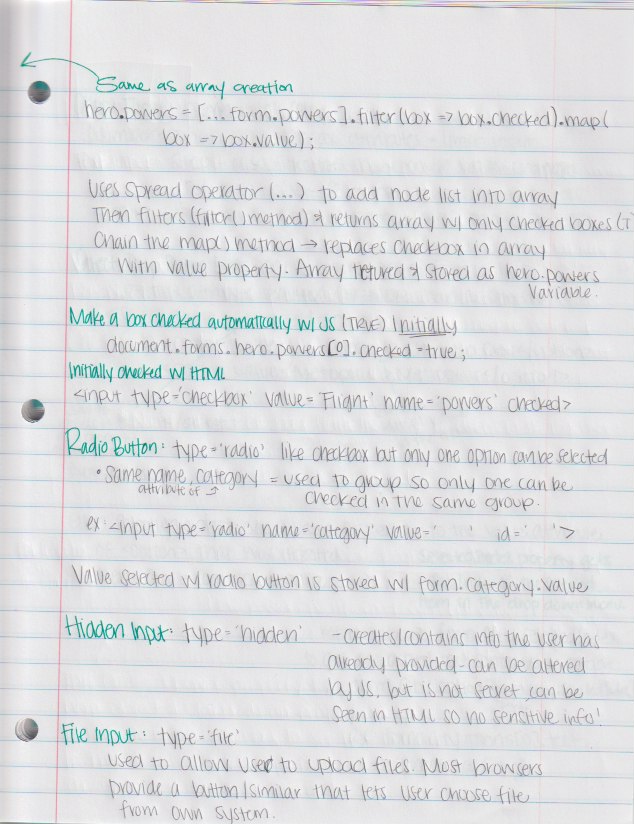 Same as array creation
hero.powers = [...form.powers].filter(box => box.checked).map(
box => box.value);
Uses spread operator (...) to add node list into array
Then filters (filter() method) & returns array w/ only checked boxes (T
Chain the map() method → replaces checkbox in array
with value property. Array retured & stored as hero.powers
variable.
Make a box checked automatically w/ JS (TRUE) Initially
document.forms.hero.powers[0].checked = true;
Initially checked w/ HTML
<input type='checkbox' value='Flight' name='powers' checked>
Radio Button: type='radio' like checkbox but only one option can be selected
• Same name, category = used to group so only one can be
attribute of
checked in the same group.
ex: <input type='radio' name='category' value=' ' id=' '>
Value selected w/ radio button is stored w/ form.category.value
Hidden Input: type='hidden' - creates/contains info the user has
already provided - can be altered
by JS, but is not secret, can be
seen in HTML so no sensitive info!
File Input: type='file'
used to allow user to upload files. Most browsers
provide a button/similar that lets user choose file
from own system.